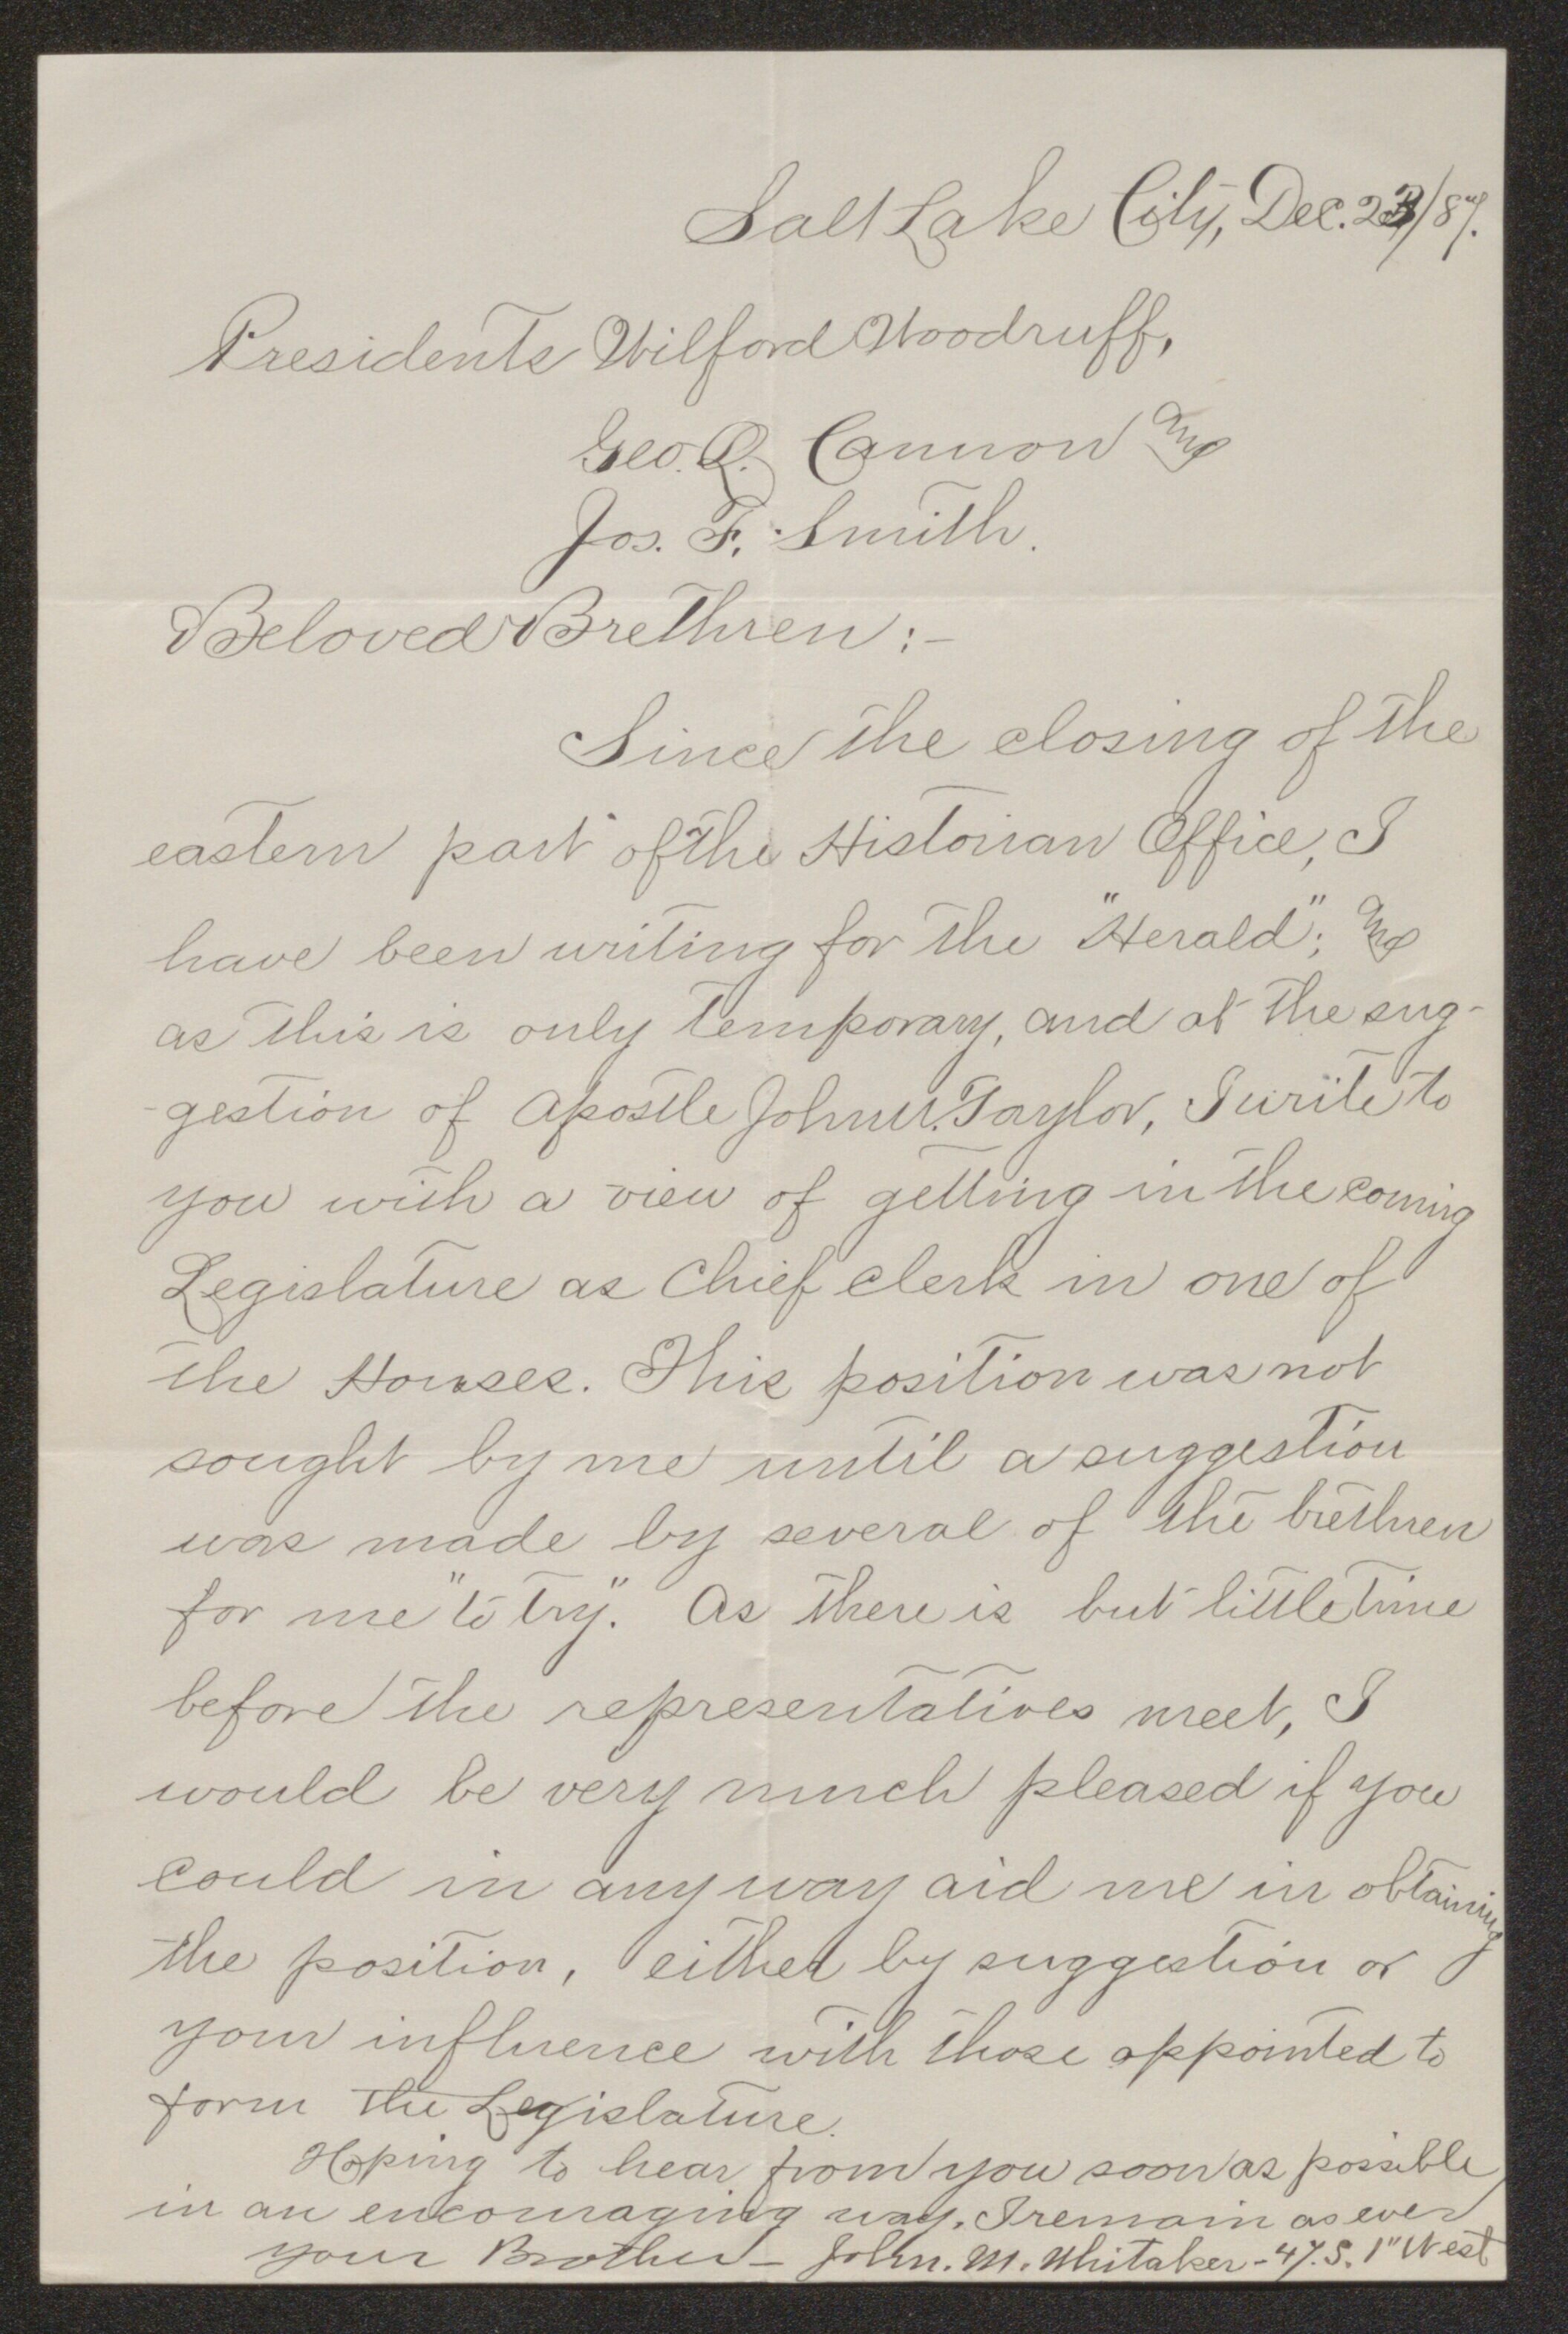 Salt Lake City, Dec. 23/87.
Presidents Wilford Woodruff,
Geo. Q. Cannon and
Jos. F. Smith.
Beloved Brethren:-
Since the closing of the
eastern part of the Historian Office, I
have been writing for the "Herald"; and
as this is only temporary, and at the sug-
-gestion of Apostle John W. Taylor, I write to
you with a view of getting in the coming
Legislature as Chief clerk in one of
the Houses. This position was not
sought by me until a suggestion
was made by several of the brethren
for me "to try". As there is but little time
before the representatives meet, I
would be very much pleased if you
could in any way aid me in obtaining
the position, either by suggestion or
your influence with those appointed to
form the Legislature.
Hoping to hear from you soon as possible,
in an encouraging way, I remain as ever
your Brother - John. M. Whitaker - 47. S. 1" West